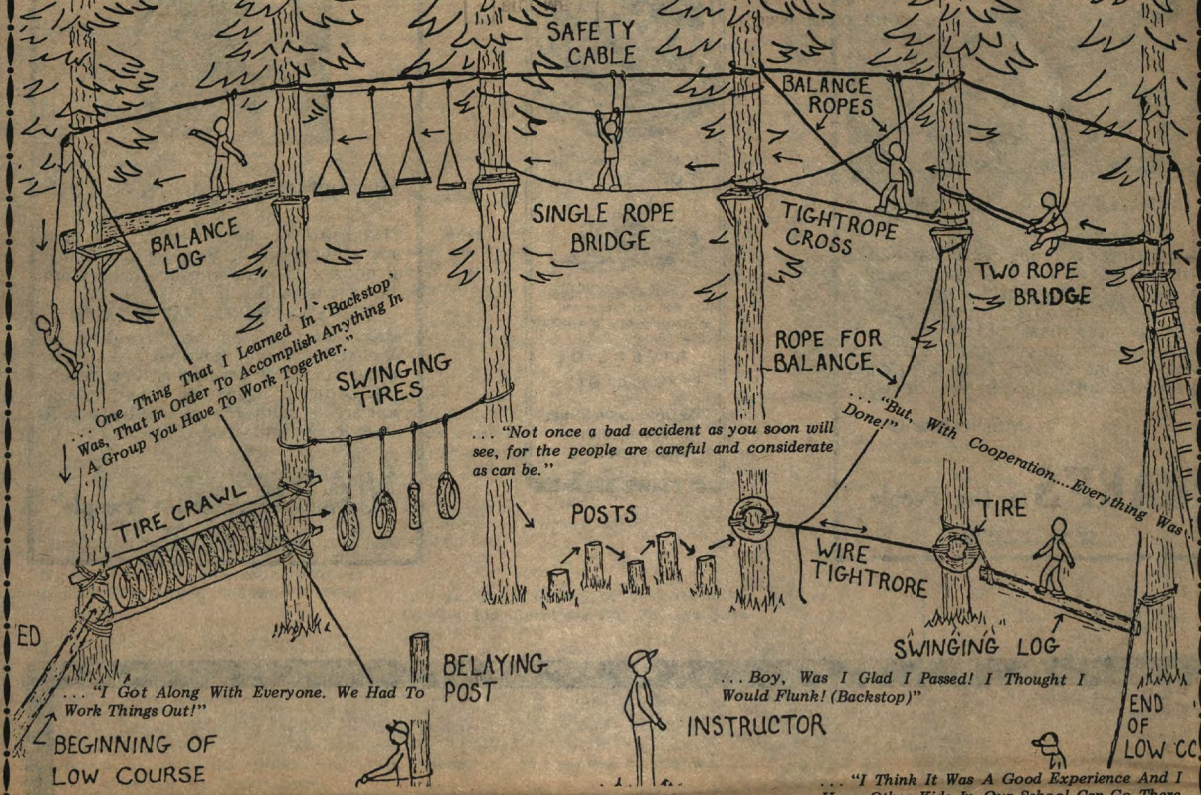 SAFETY
CABLE
BALANCE
ROPES
BALANCE
LOG
SINGLE ROPE
BRIDGE
TIGHTROPE
CROSS
TWO ROPE
BRIDGE
. . . One Thing That I Learned In 'Backstop'
Was, That In Order To Accomplish Anything In
A Group You Have To Work Together."
SWINGING
TIRES
ROPE FOR
BALANCE
. . . "Not once a bad accident as you soon will
see, for the people are careful and considerate
as can be."
. . . "But, With Cooperation....Everything Was
Done!"
TIRE CRAWL
POSTS
TIRE
WIRE
TIGHTRORE
SWINGING LOG
ED
BELAYING
POST
. . . "I Got Along With Everyone. We Had To
Work Things Out!"
. . . Boy, Was I Glad I Passed! I Thought I
Would Flunk! (Backstop)"
INSTRUCTOR
BEGINNING OF
LOW COURSE
END
OF
LOW CC
. . . "I Think It Was A Good Experience And I
Other Kids In Our School Can Go There